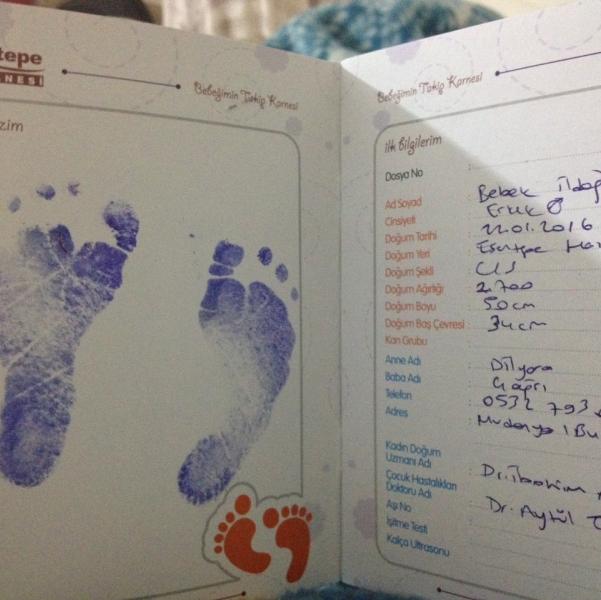 tepe
NESİ
Bebeğimin Takip Karnesi
zim
Bebeğimin Takip Karnesi
ilk Bilgilerim
Dosya No :
Ad Soyad : Bebek
Cinsiyeti : Erkek ♂
Doğum Tarihi : 22.01.2016
Doğum Yeri : Esentepe
Doğum Şekli : C/S
Doğum Ağırlığı : 2.700
Doğum Boyu : 50 cm
Doğum Baş Çevresi : 34 cm
Kan Grubu :
Anne Adı : Dilyora
Baba Adı : Çağrı
Telefon : 0532 793
Adres : Mudanya / Bu
Kadın Doğum
Uzmanı Adı : Dr. İbrahim
Çocuk Hastalıkları
Doktoru Adı : Dr. Aytül
Aşı No :
İşitme Testi :
Kalça Ultrasonu :